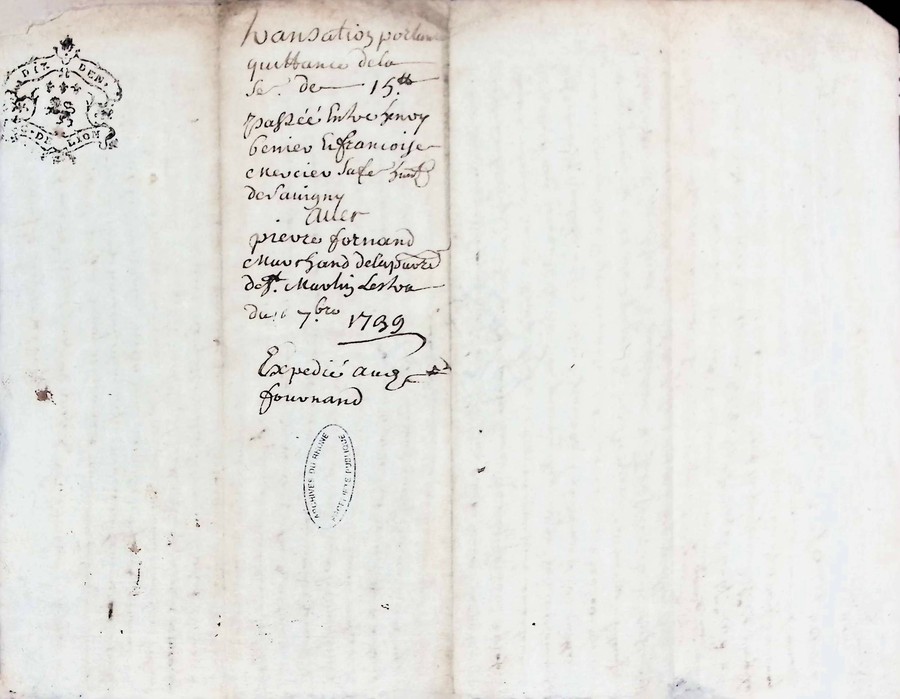 DIX DEN.
G. DE LION
transation portant
quittance de la
se. de 15 ₶
passée Entre
benier Et francoise
mercier sa fe
de Savigny
Avec
pierre fornand
Marchand de la parre
de St. Martin Lestra
du 7bre 1739
Expedié aud
fournand
ARCHIVES DU RHONE